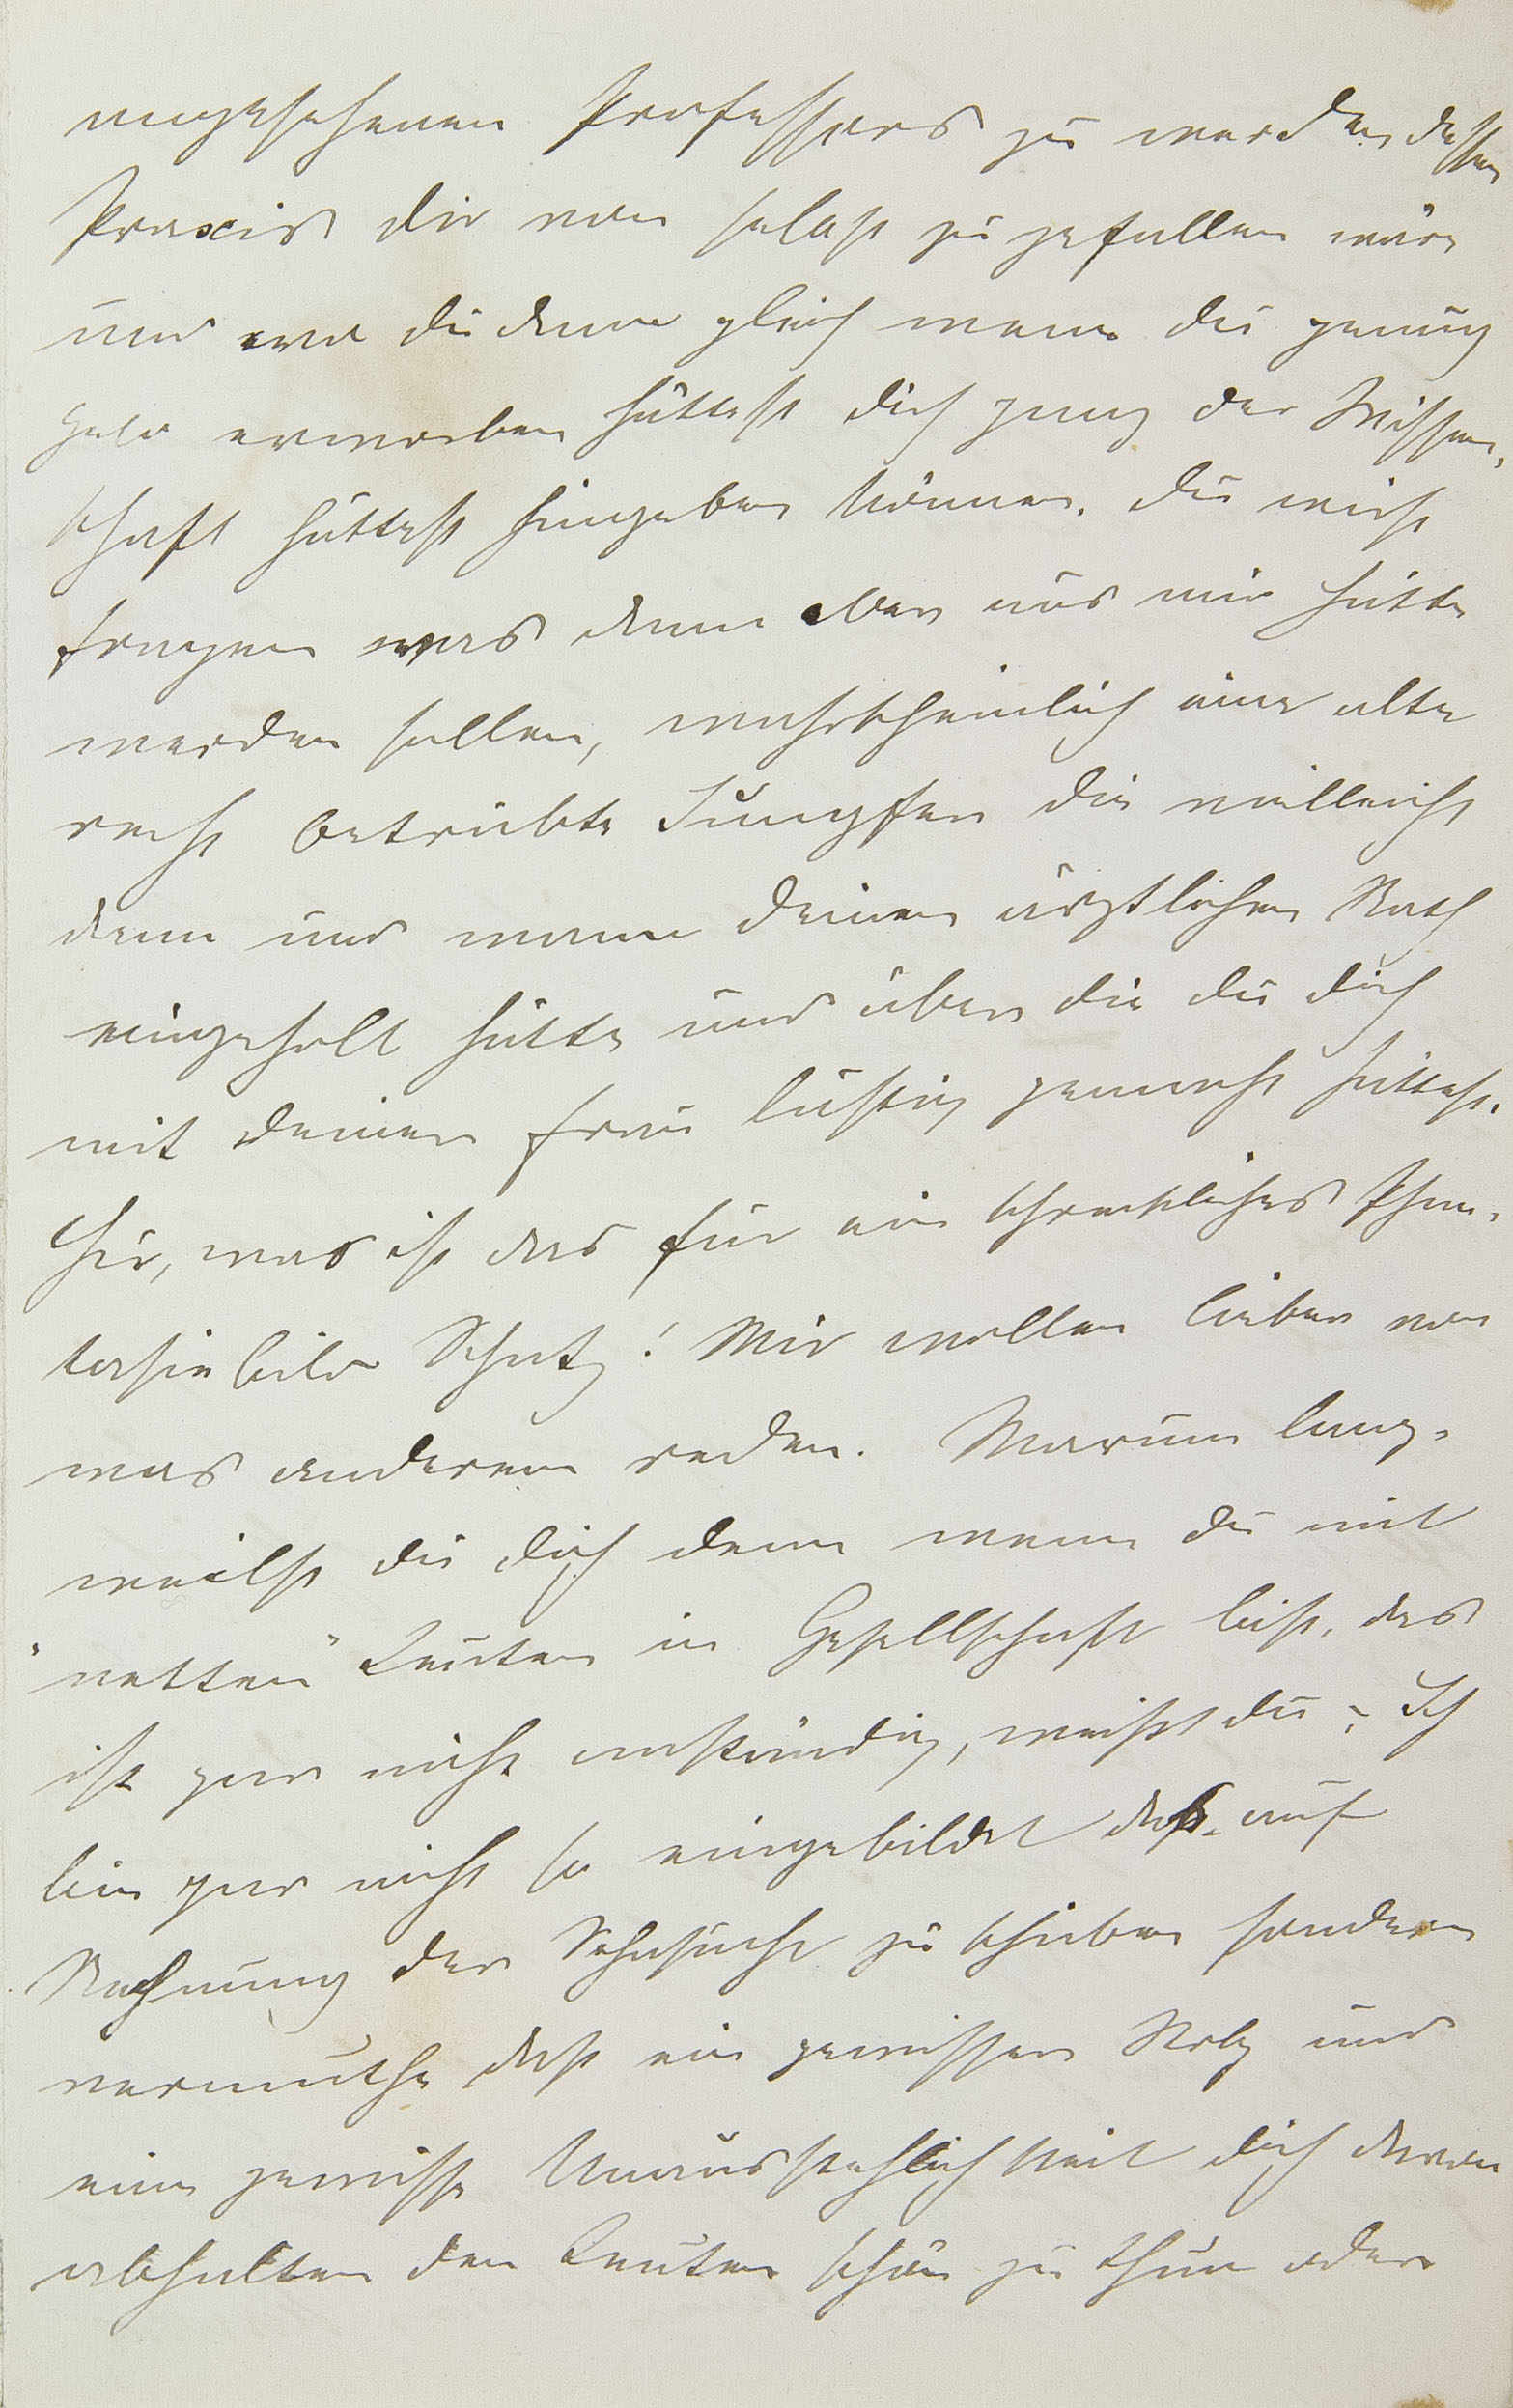 angesehenen Professors zu werden dessen
Praxis dir von selbst zu gefallen wäre
und wo du dann gleich wenn du genug
Geld erworben hättest dich ganz der Wissen-
schaft hättest hingeben können. Du wirst
fragen was denn aber aus mir hätte
werden sollen, wahrscheinlich eine alte
recht betrübte Jungfer die vielleicht
dann und wann deinen ärztlichen Rath
eingeholt hätte und über die du dich
mit deiner Frau lustig gemacht hättest.
Hu, was ist das für ein schreckliches Phan-
tasiebild Schatz! Wir wollen lieber von
was anderem reden. Warum lang-
weilst du dich denn wenn du mit
"netten" Leuten in Gesellschaft bist, das
ist gar nicht anständig, weißt du? Ich
bin gar nicht so eingebildet das auf
Rechnung der Sehnsucht zu schieben sondern
vermuthe daß ein gewisser Stolz und
eine gewisse Unausstehlichkeit dich davon
abhalten den Leuten schön zu thun oder